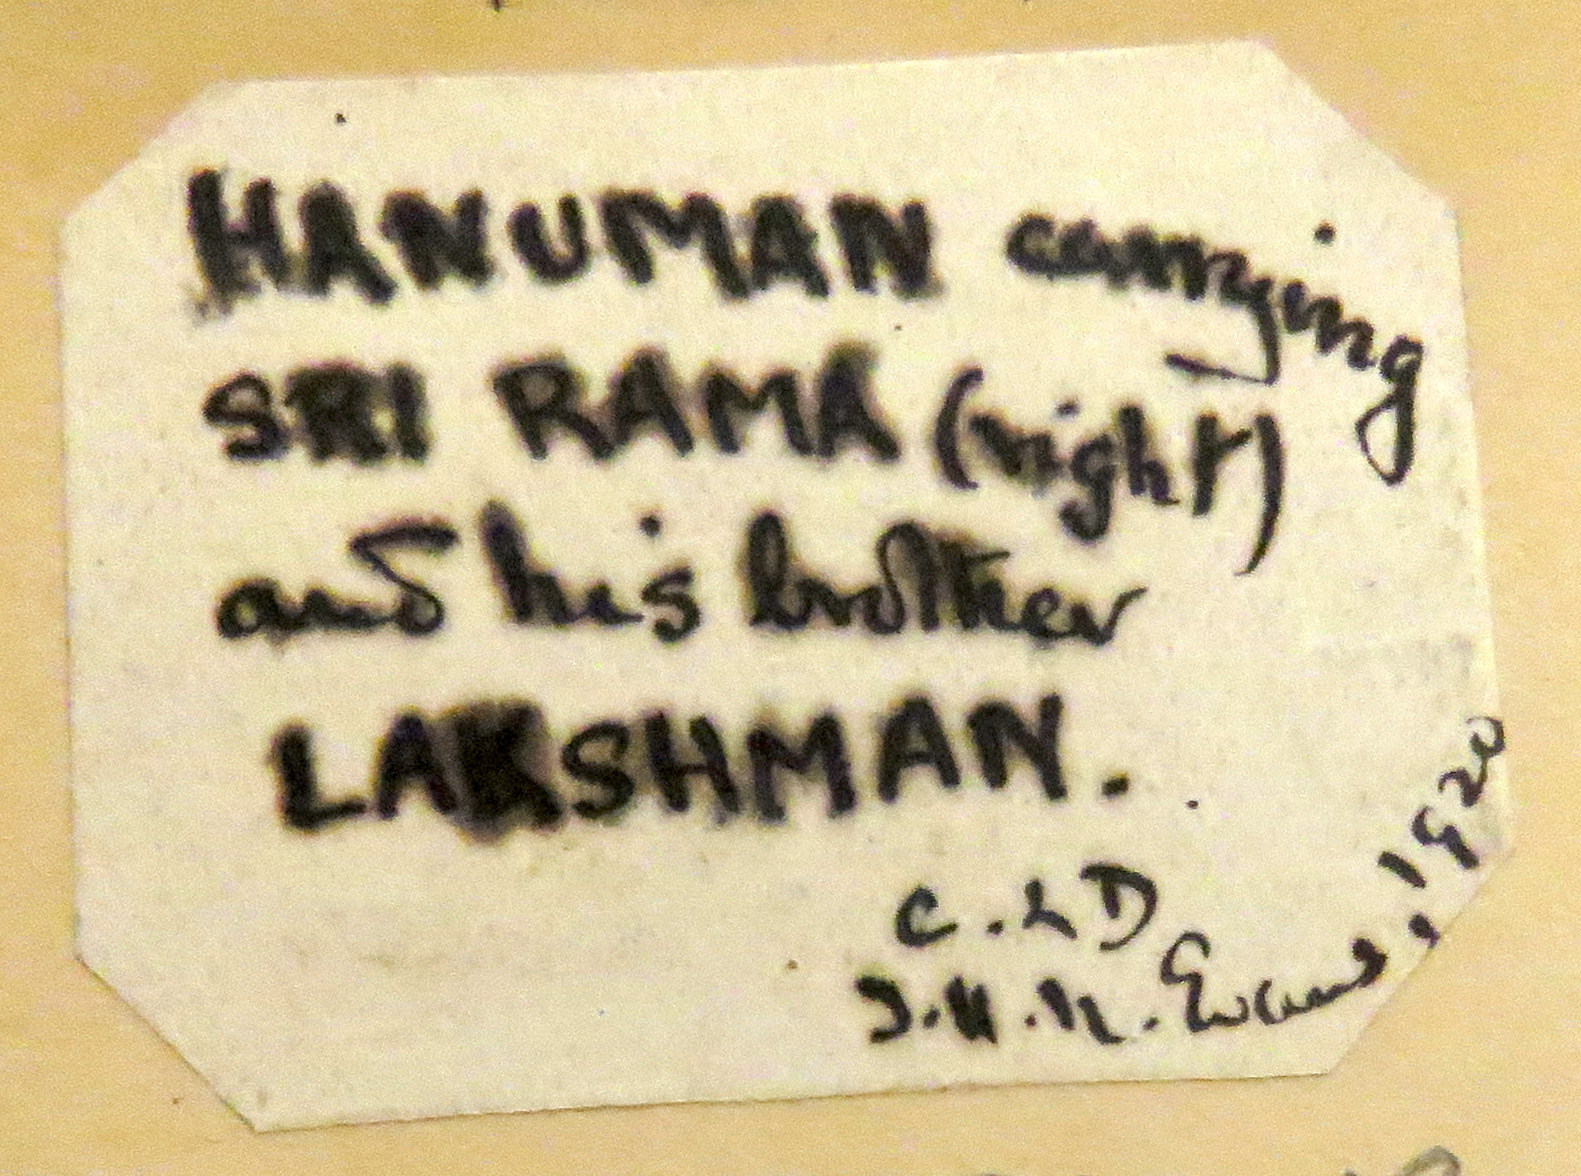 HANUMAN carrying
SRI RAMA (right)
and his brother
LAKSHMAN.
C. & D
I.H.N. Evans, 1920